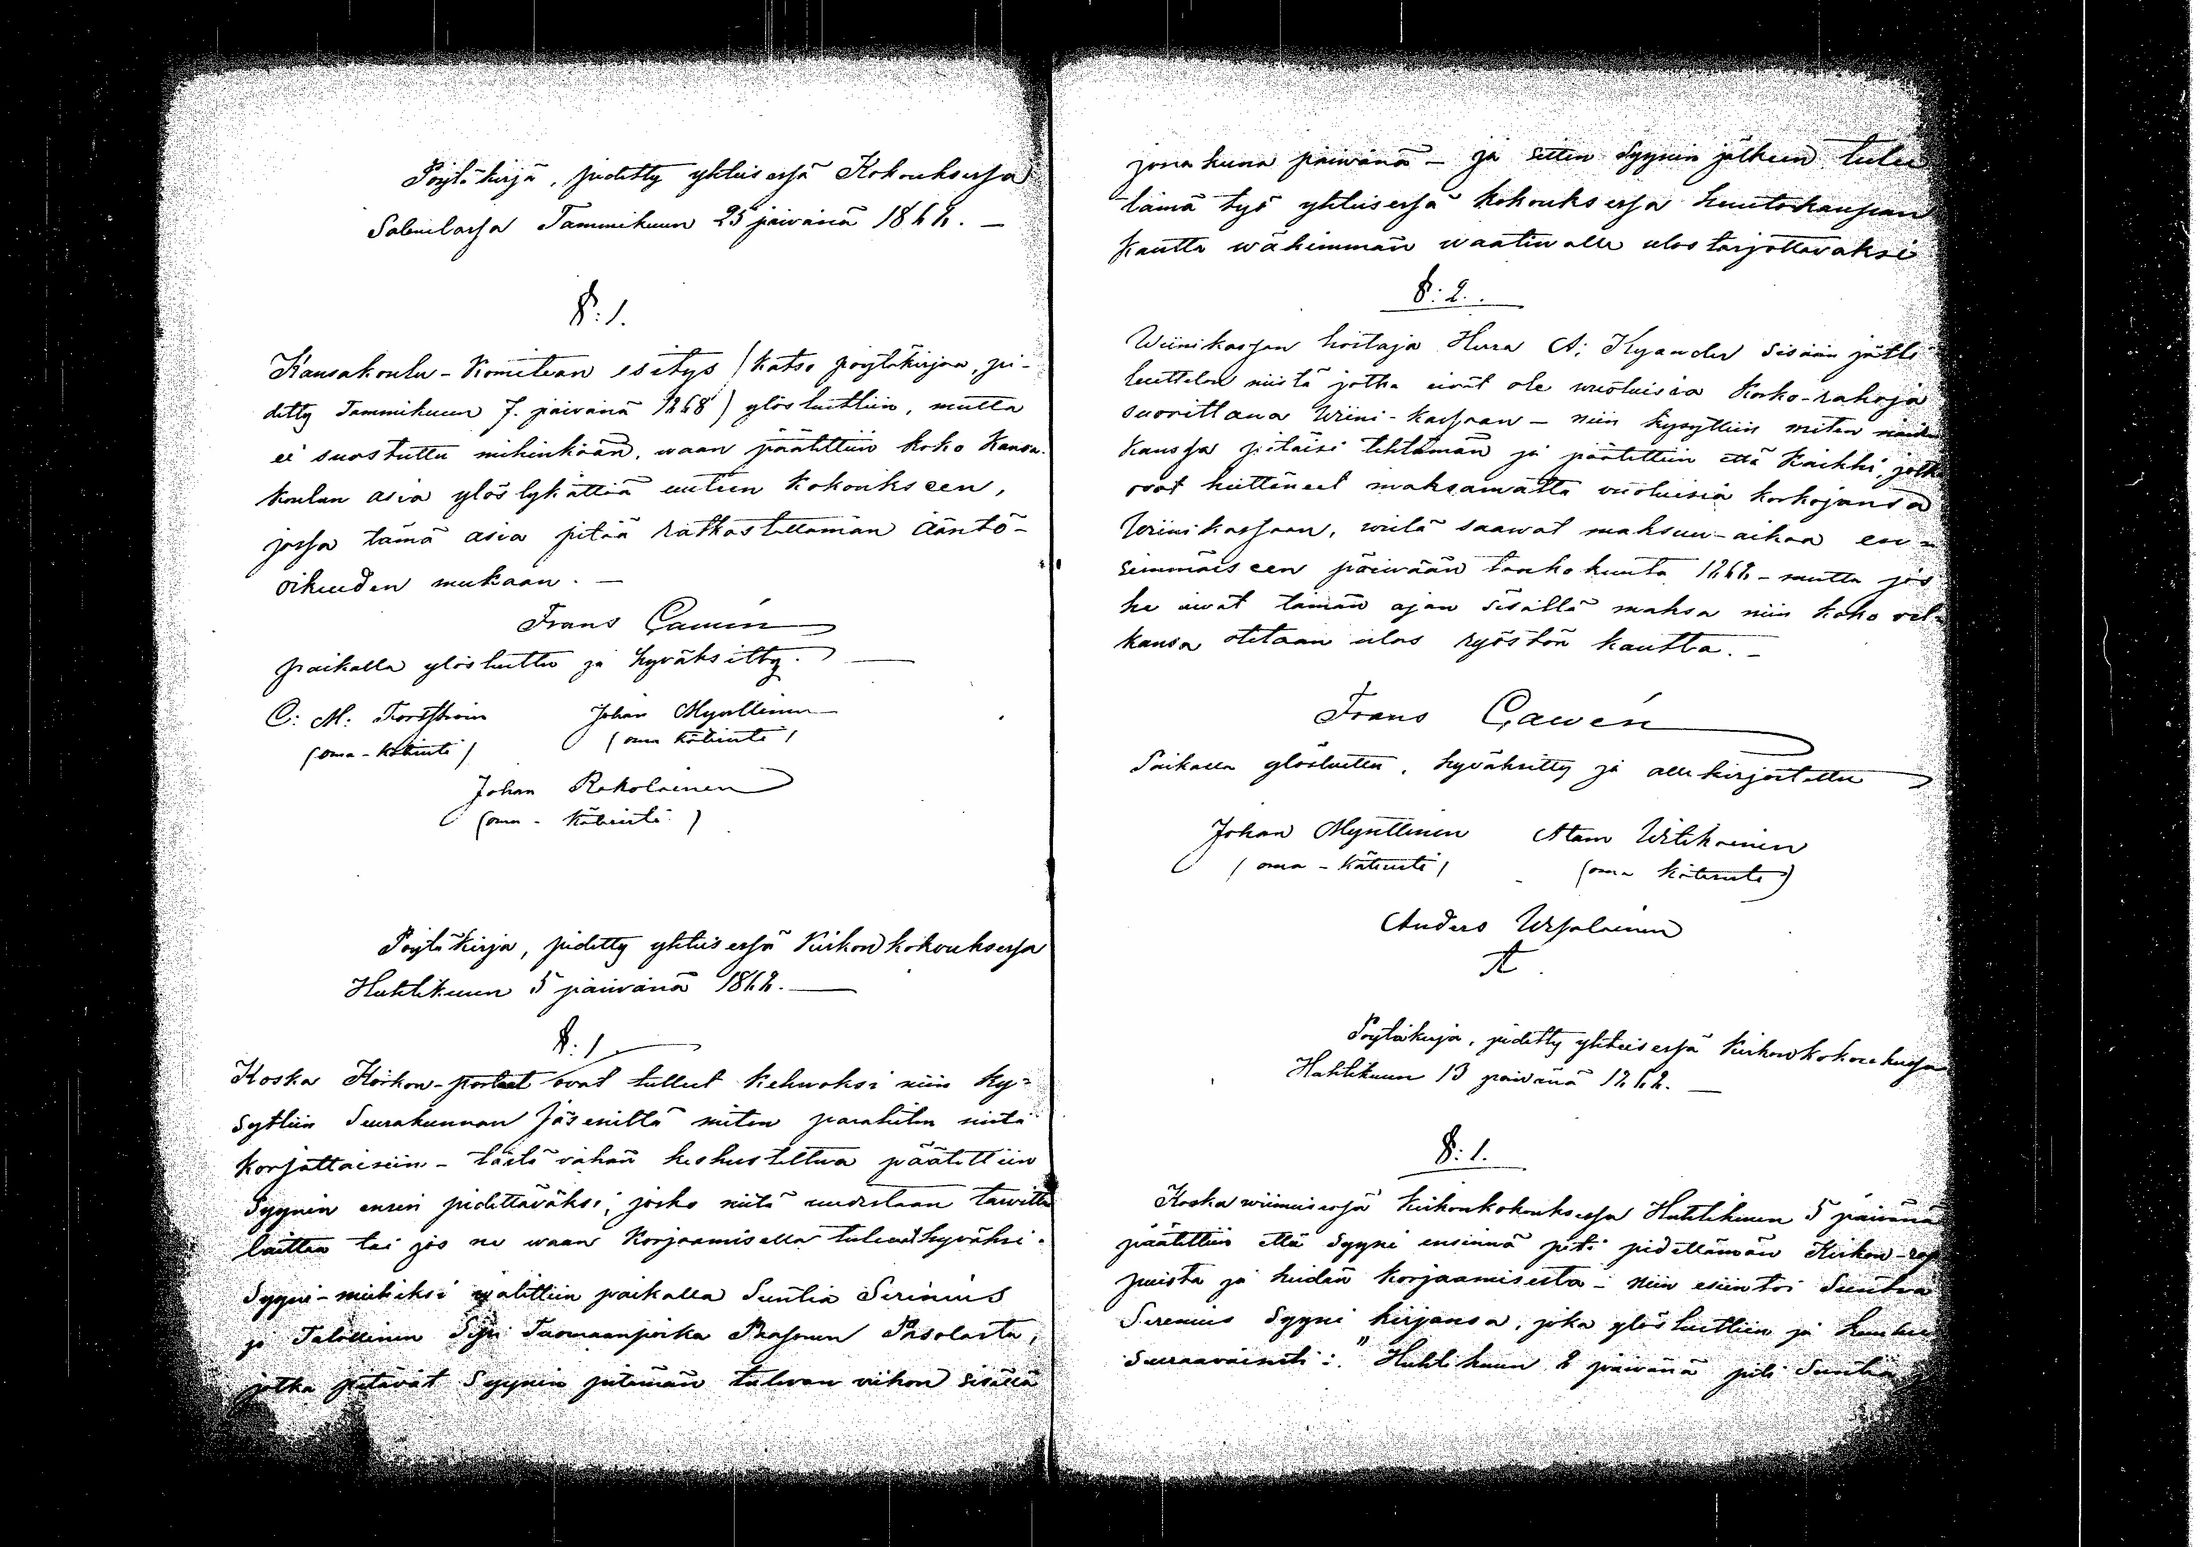 Pöytäkirja, pidetty yhteisessä Kokouksessa
Salmilassa Tammikuun 25 päivänä 1868. —
§: 1.
Kansakoulu-Komitean esitys (katso pöytäkirjaa, pi-
detty Tammikuun 7. päivänä 1868) ylösluettiin, mutta
ei suostuttu mihinkään, waan päätettiin koko Kansa-
koulun asia ylöslykättiä uuteen Kokoukseen,
jossa tämä asia pitää ratkastettaman ääntö-
oikeuden mukaan. —
Frans Cawén
paikalla ylösluettu ja hyväksitty. —
C: M: Forsström Johan Mynttinen
(oma-kätisesti) (oma kätisesti)
Johan Rokolainen
(oma-kätisesti)
Pöytäkirja, pidetty yhteisessä Kirkonkokouksessa
Huhtikuun 5 päivänä 1868. —
§: 1.
Koska Kirkon-portaat ovat tulleet kehnoksi niin ky-
syttiin Seurakunnan Jäseniltä miten parahiten niitä
korjattaisiin – tästä vähän keskusteltua päätettiin
Syynin ensin pidettäväksi, josko niitä uudestaan tarvittu
laittaa tai jos ne waan Korjaamisella tulevat hyväksi.
Syyni-miehiksi walittiin paikalla Suntia Serenius
ja Talollinen Tuomaanpoika Paasonen Pasolasta,
jotka pitävät Syynin pitämän tulevan viikon sisällä
jonakuna päivänä – ja sitten Syynin jälkeen tulee
tämä työ yhteisessä kokouksessa huutokaupan
kautta wähimmän waativalle ulostarjottavaksi
§: 2.
Wiinikassan hoitaja Herra A: Kyander sisään jätti
luettelon niistä jotka eivät ole wuotuisia Korko-rahoja
suorittana Wiini-kassaan – niin kysyttiin miten näiden
Kanssa pitäisi tehtämän ja päätettiin että kaikki, jotka
ovat heittäneet maksamatta vuotuisia korkojansa
Wiinikassaan, wielä saawat maksuu-aikaa en-
simmäiseen päivään toukokuuta 1868 – mutta jos
he eivät tämän ajan sisällä maksa niin koko vel-
kansa otetaan ulos ryöstön kautta. —
Frans Cawén
Paikalla ylösluettu, hyväksitty ja allekirjoitettu
Johan Mynttinen Atam Witikainen
(oma-kätisesti) (oma kätisesti)
Anders Ursalainen
Pöytäkirja, pidetty yhteisessä Kirkonkokouksessa
Huhtikuun 13 päivänä 1868. —
§: 1.
Koska wiimeisessä Kirkonkokouksessa Huhtikuun 5 päivänä
päätettiin että Syyni ensinnä piti pidettämän Kirkon-rap-
puista ja heidän korjaamisesta – niin esiintoi Suntia
Serenius Syyni kirjansa, joka ylösluettiin ja kuuluu
seuraavaisesti: "Huhtikuun 8 päivänä piti Suntia